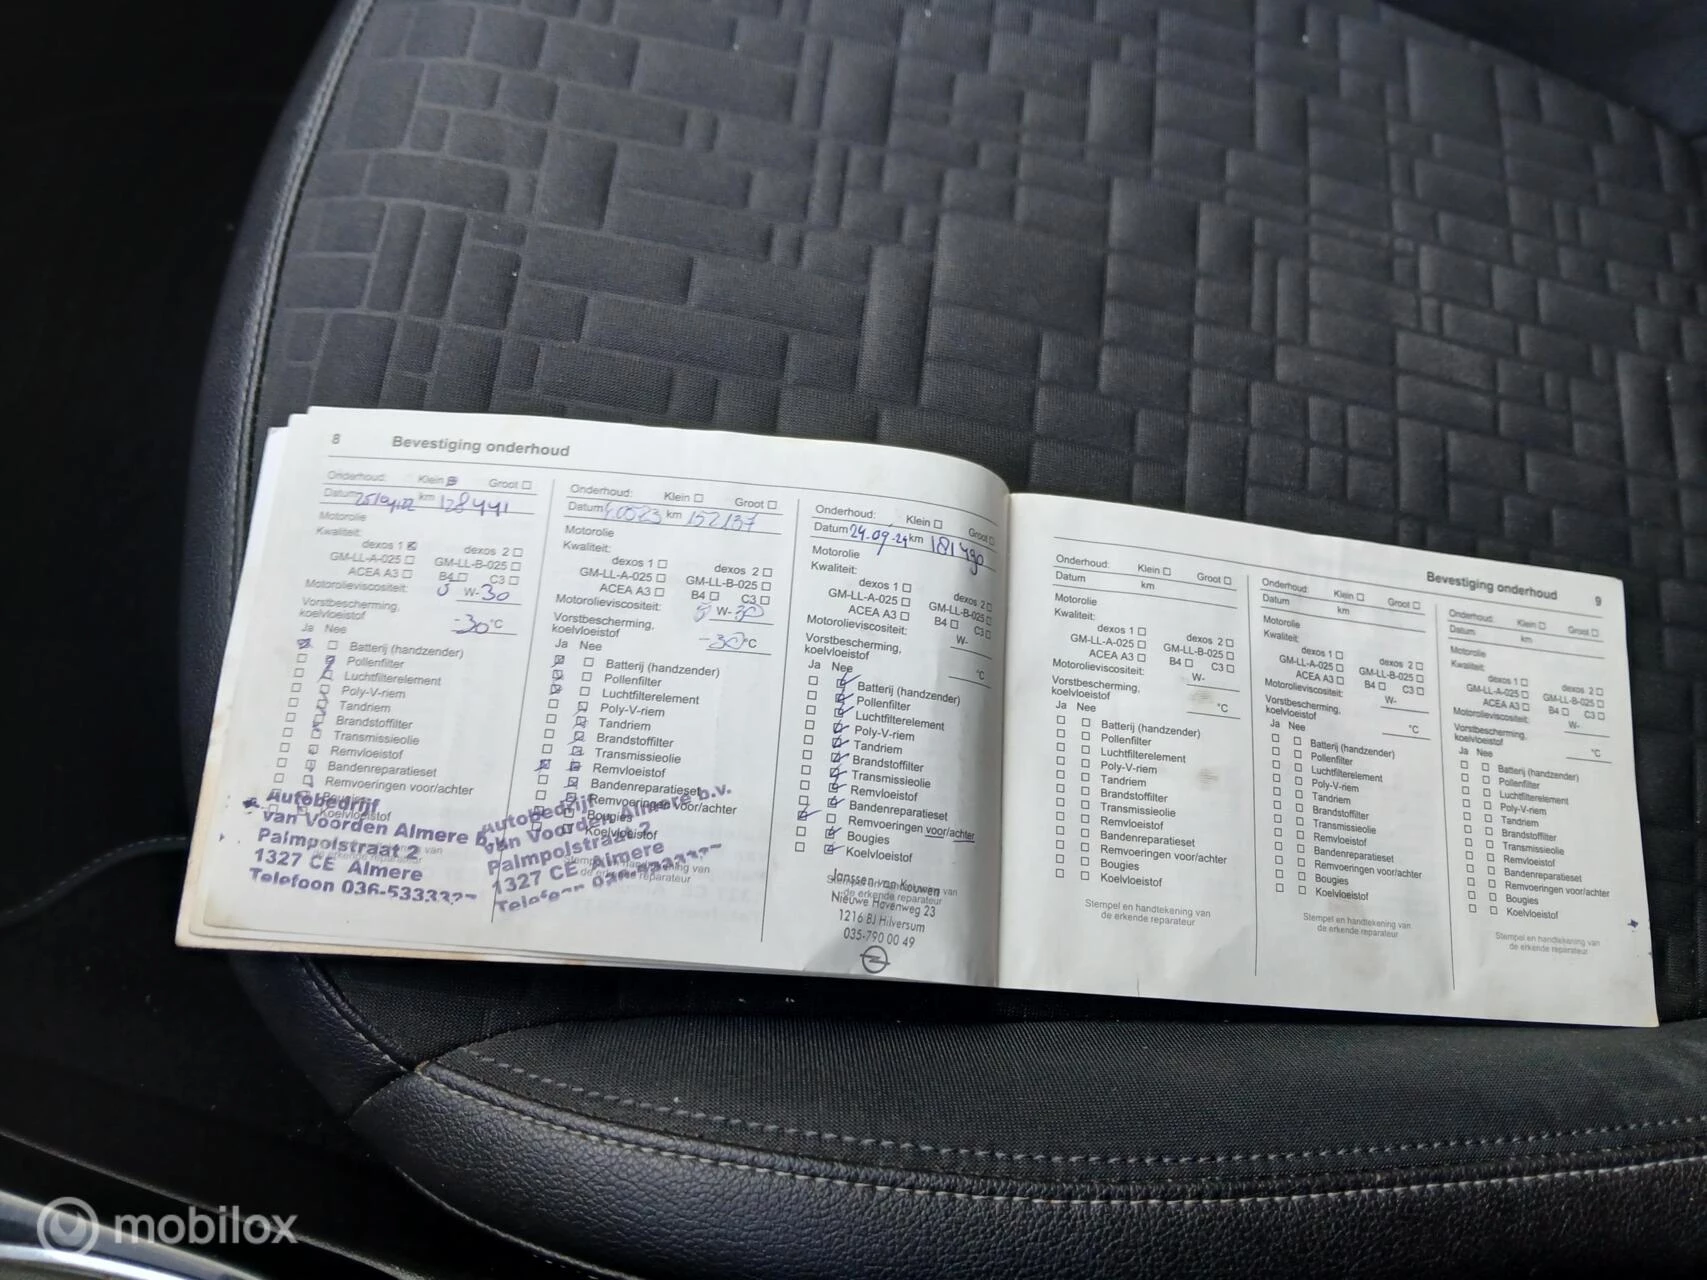 8 Bevestiging onderhoud
Onderhoud: Klein Groot
Datum 25/04/22 km 128441
Motorolie
Kwaliteit:
dexos 1 dexos 2
GM-LL-A-025 GM-LL-B-025
ACEA A3 B4 C3
Motorolieviscositeit: 5 W-30
Vorstbescherming,
koelvloeistof -30 °C
Ja Nee
Batterij (handzender)
Pollenfilter
Luchtfilterelement
Poly-V-riem
Tandriem
Brandstoffilter
Transmissieolie
Remvloeistof
Bandenreparatieset
Remvoeringen voor/achter
Bougies
Koelvloeistof
Autobedrijf
van Voorden Almere B.V.
Palmpolstraat 2
1327 CE Almere
Telefoon 036-5333327
Onderhoud: Klein Groot
Datum km 152137
Motorolie
Kwaliteit:
dexos 1 dexos 2
GM-LL-A-025 GM-LL-B-025
ACEA A3 B4 C3
Motorolieviscositeit: 5 W-30
Vorstbescherming,
koelvloeistof -30 °C
Ja Nee
Batterij (handzender)
Pollenfilter
Luchtfilterelement
Poly-V-riem
Tandriem
Brandstoffilter
Transmissieolie
Remvloeistof
Bandenreparatieset
Remvoeringen voor/achter
Bougies
Koelvloeistof
Autobedrijf
van Voorden Almere b.v.
Palmpolstraat 2
1327 CE Almere
Telefoon 036-5333327
Onderhoud: Klein Groot
Datum 24-09-24 km 181490
Motorolie
Kwaliteit:
dexos 1 dexos 2
GM-LL-A-025 GM-LL-B-025
ACEA A3 B4 C3
Motorolieviscositeit: W-
Vorstbescherming,
koelvloeistof °C
Ja Nee
Batterij (handzender)
Pollenfilter
Luchtfilterelement
Poly-V-riem
Tandriem
Brandstoffilter
Transmissieolie
Remvloeistof
Bandenreparatieset
Remvoeringen voor/achter
Bougies
Koelvloeistof
Janssen van Kouwen
Nieuwe Havenweg 23
1216 BJ Hilversum
035-790 00 49
Bevestiging onderhoud 9
Onderhoud: Klein Groot
Datum km
Motorolie
Kwaliteit:
dexos 1 dexos 2
GM-LL-A-025 GM-LL-B-025
ACEA A3 B4 C3
Motorolieviscositeit: W-
Vorstbescherming,
koelvloeistof °C
Ja Nee
Batterij (handzender)
Pollenfilter
Luchtfilterelement
Poly-V-riem
Tandriem
Brandstoffilter
Transmissieolie
Remvloeistof
Bandenreparatieset
Remvoeringen voor/achter
Bougies
Koelvloeistof
Stempel en handtekening van
de erkende reparateur
Onderhoud: Klein Groot
Datum km
Motorolie
Kwaliteit:
dexos 1 dexos 2
GM-LL-A-025 GM-LL-B-025
ACEA A3 B4 C3
Motorolieviscositeit: W-
Vorstbescherming,
koelvloeistof °C
Ja Nee
Batterij (handzender)
Pollenfilter
Luchtfilterelement
Poly-V-riem
Tandriem
Brandstoffilter
Transmissieolie
Remvloeistof
Bandenreparatieset
Remvoeringen voor/achter
Bougies
Koelvloeistof
Stempel en handtekening van
de erkende reparateur
Onderhoud: Klein Groot
Datum km
Motorolie
Kwaliteit:
dexos 1 dexos 2
GM-LL-A-025 GM-LL-B-025
ACEA A3 B4 C3
Motorolieviscositeit: W-
Vorstbescherming,
koelvloeistof °C
Ja Nee
Batterij (handzender)
Pollenfilter
Luchtfilterelement
Poly-V-riem
Tandriem
Brandstoffilter
Transmissieolie
Remvloeistof
Bandenreparatieset
Remvoeringen voor/achter
Bougies
Koelvloeistof
Stempel en handtekening van
de erkende reparateur
mobilox